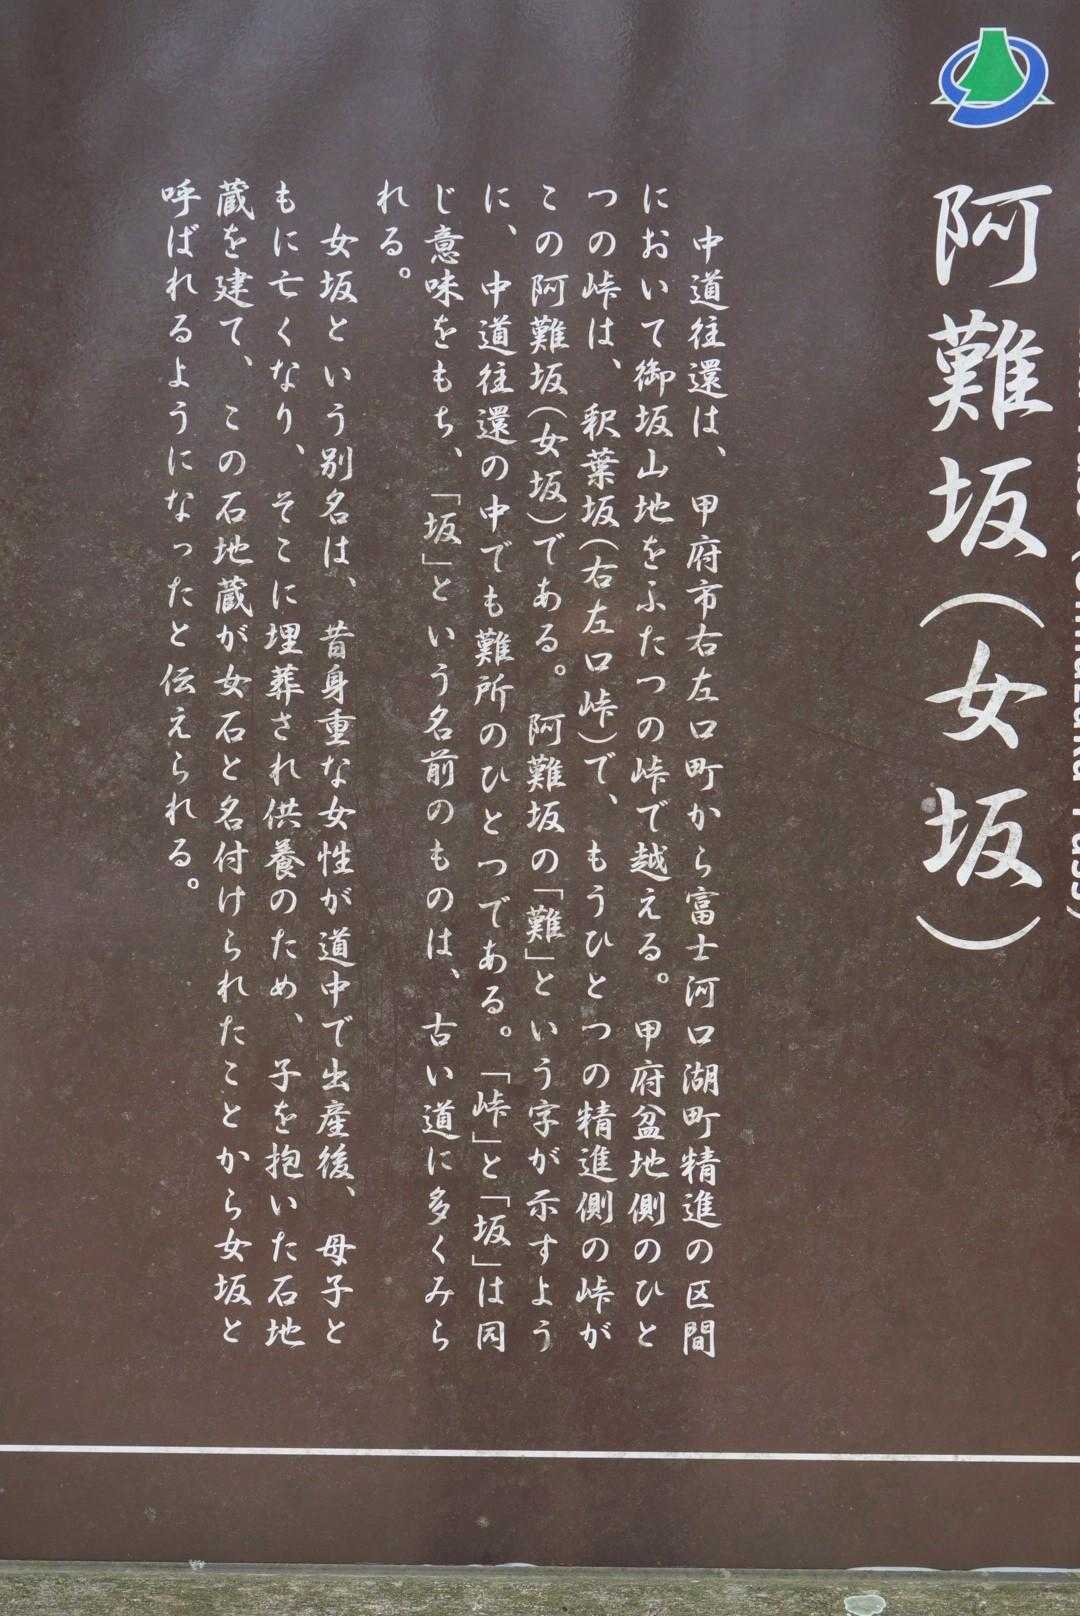 阿難坂(女坂)
中道往還は、甲府市右左口町から富士河口湖町精進の区間
において御坂山地をふたつの峠で越える。甲府盆地側のひと
つの峠は、釈葉坂(右左口峠)で、もうひとつの精進側の峠が
この阿難坂(女坂)である。阿難坂の「難」という字が示すよう
に、中道往還の中でも難所のひとつである。「峠」と「坂」は同
じ意味をもち、「坂」という名前のものは、古い道に多くみら
れる。
女坂という別名は、昔身重な女性が道中で出産後、母子と
もに亡くなり、そこに埋葬され供養のため、子を抱いた石地
蔵を建て、この石地蔵が女石と名付けられたことから女坂と
呼ばれるようになったと伝えられる。